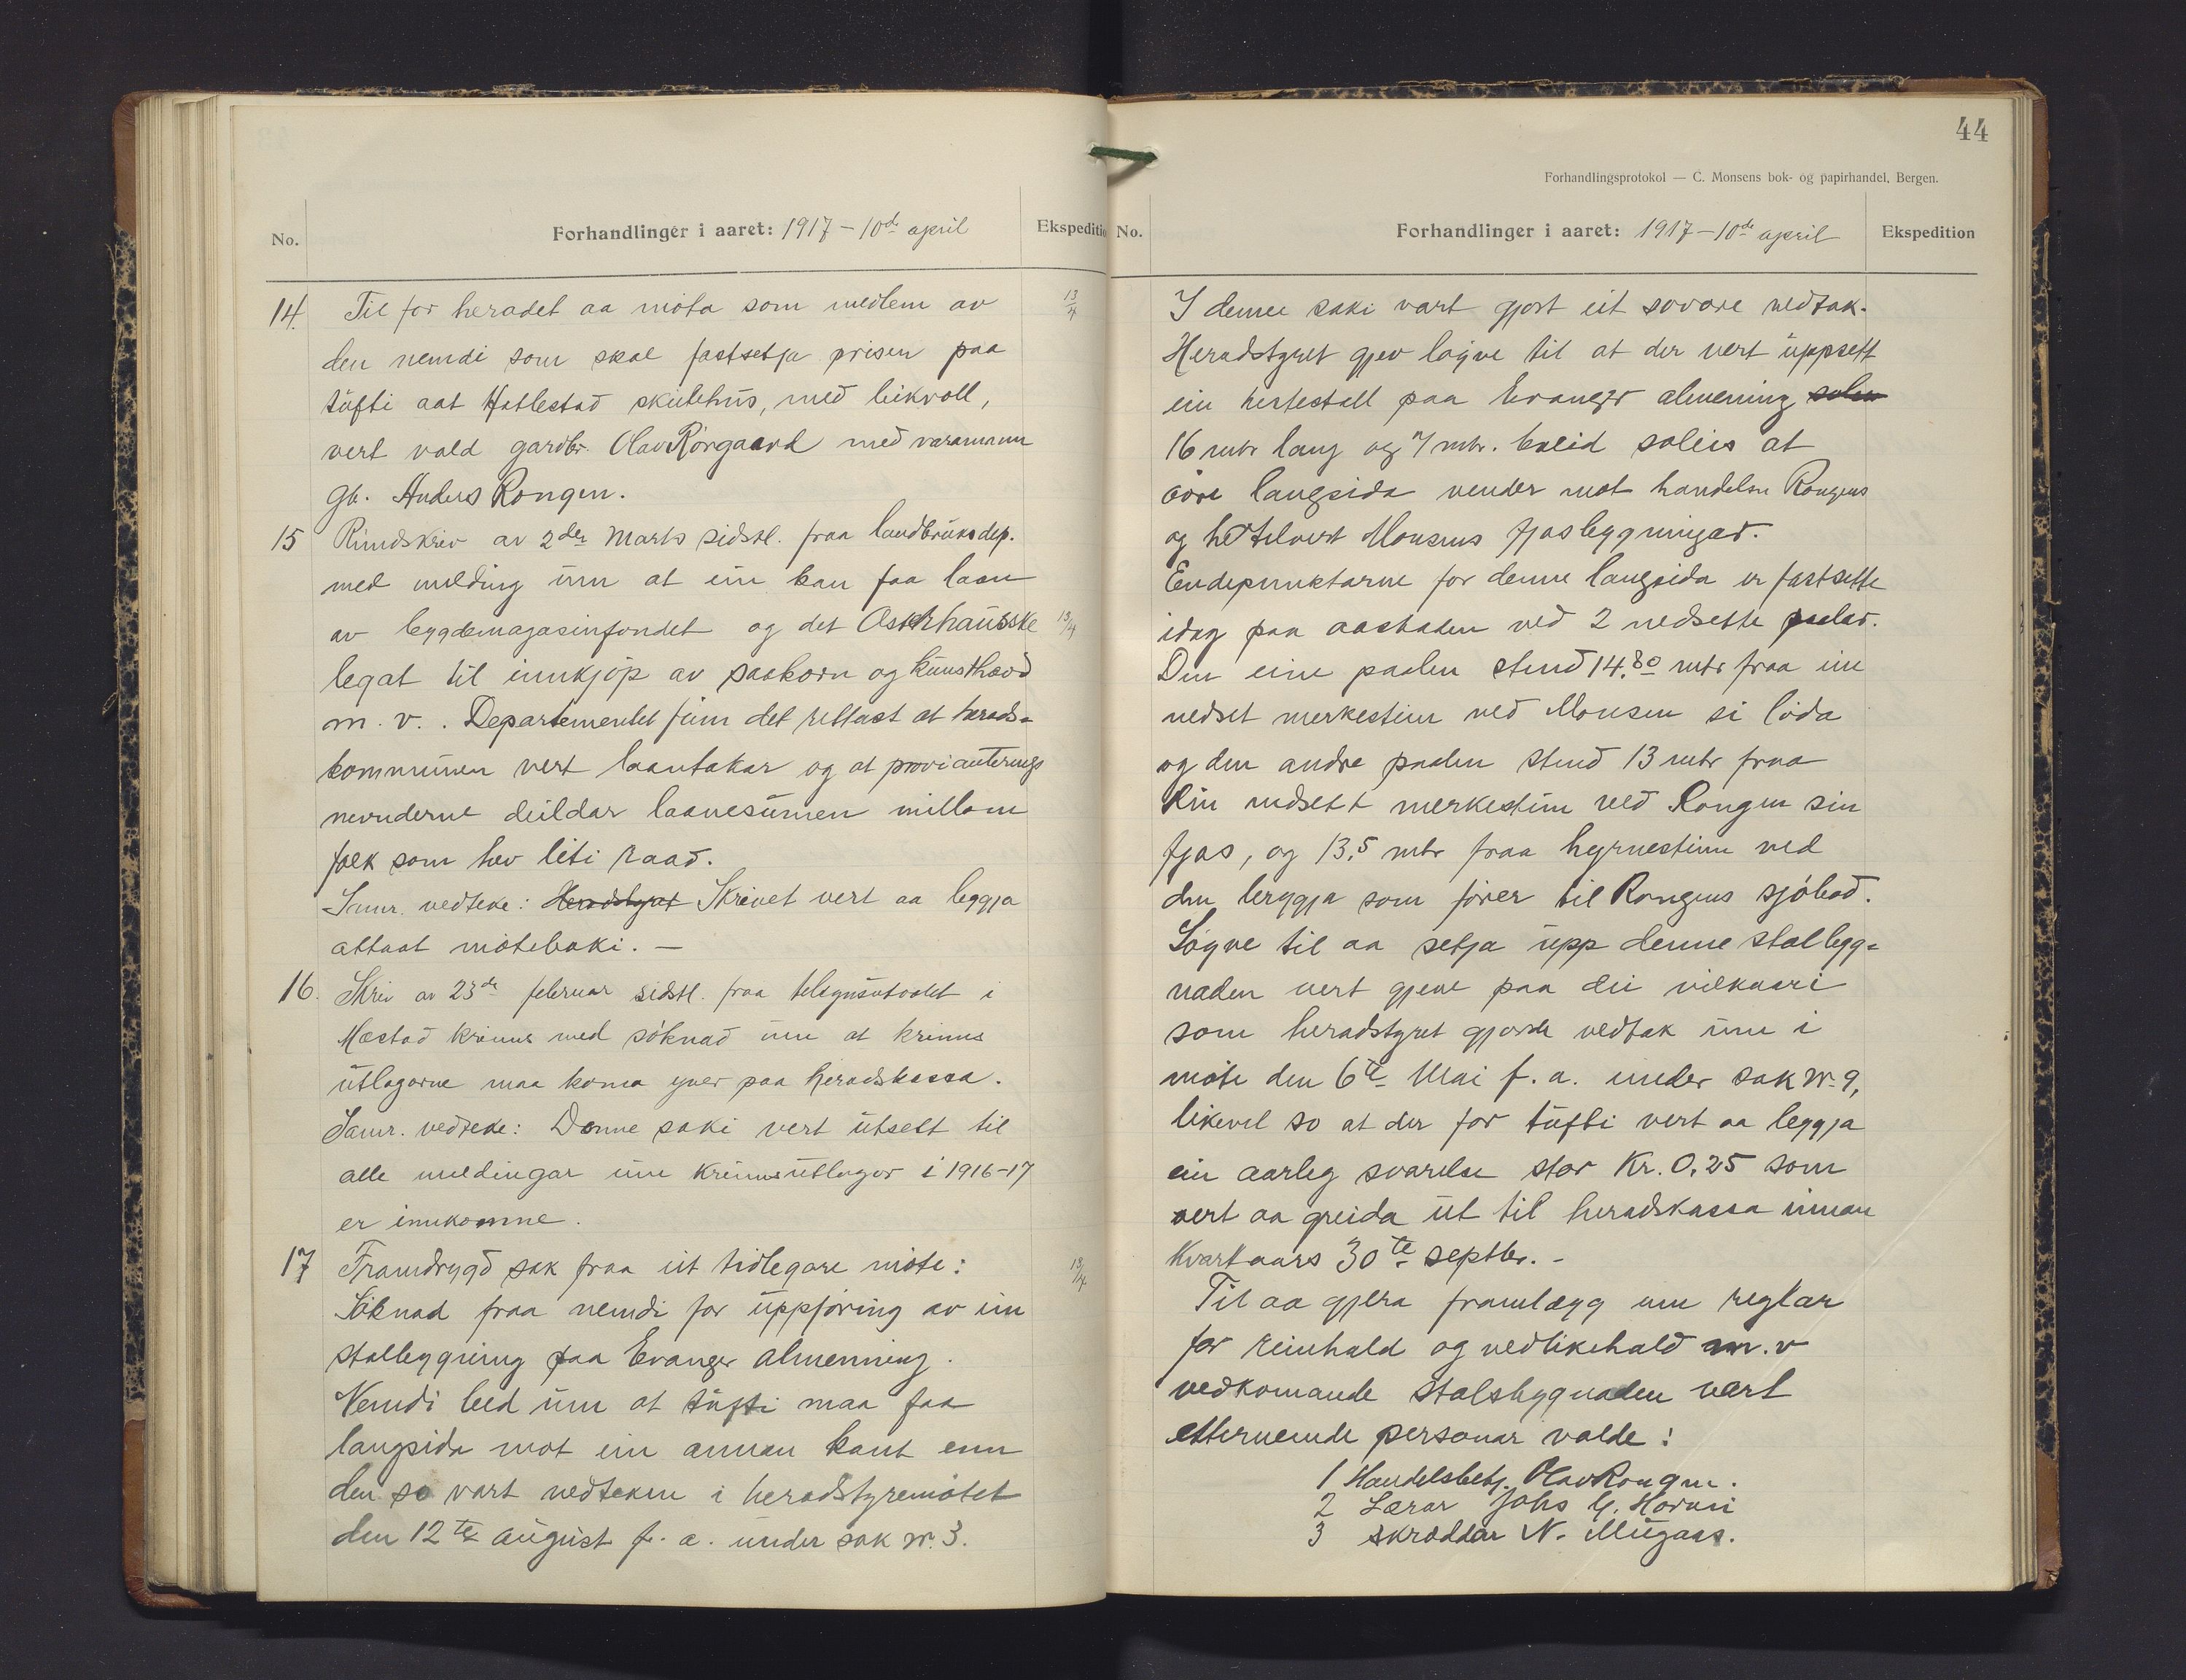 No.
Forhandlinger i aaret: 1917 – 10de april
Ekspeditio
14. Til for heradet aa møta som medlem av 13/4
den nemdi som skal fastsetja prisen paa
tufti aat Hatlestad skulehus, med leikvoll,
vert vald gardbr. Olav Rørgaard med varamann
gb. Anders Rongen.
15 Rundskriv av 2den Marts sidstl. fraa landbruksdep.
med melding um at ein kan faa laan
av bygdemagasinfondet og det 13/4
legat til innkjøp av saakorn og kunsthævd
m. v. . Departementet finn det rettast at herads-
kommunen vert laantakar og at provianterings
nevnderne deildar laanesumen millom
folk som hev liti raad.
Samr. vedteke: Heradstyret Skrivet vert aa leggja
attaat møteboki. —
16. Skriv av 23de februar sidstl. fraa tilsynsutvalet i
Mæstad krinns med søknad um at krinns
utlagorne maa koma yver paa heradskassa.
Samr. vedteke: Denne saki vert utsett til
alle meldingar um krinnsutlagor i 1916-17
er innkomne.
17 Framdrygd sak fraa eit tidlegare møte: 13/4
Søknad fraa nemdi for uppføring av ein
stallbygning paa Evanger almenning.
Nemdi bed um at tufti maa faa
langsida mot ein annan kant enn
den so vart vedteken i heradstyremøtet
den 12te august f. a. under sak nr. 3.
44
Forhandlingsprotokol — C. Monsens bok- og papirhandel, Bergen.
No.
Forhandlinger i aaret: 1917 – 10de april
Ekspedition
I denne saki vart gjort eit sovore vedtak.
Heradstyret gjev løyve til at der vert uppsett
ein hestestall paa Evanger almenning
16 mtr lang og 7 mtr. breid soleis at
øvre langsida vender mot handelsm Rongens
og hotelvert Monsens fjosbygningar.
Endepunktarne for denne langsida er fastsette
idag paa aastaden ved 2 nedsette pælar.
Den eine paalen stend 14.80 mtr fraa ein
nedset merkestein ved Monsen si løda
og den andre paalen stend 13 mtr fraa
ein nedsett merkestein ved Rongen sin
fjos, og 13.5 mtr fraa hyrnestein ved
den bryggja som fører til Rongens sjøbod.
Løyve til aa setja upp denne stallbyg-
naden vert gjeve paa dei vilkaari
som heradstyret gjorde vedtak um i
møte den 6te Mai f. a. under sak nr. 9,
likevel so at der for tufti vert aa leggja
ein aarleg svarelse stor Kr. 0,25 som
vert aa greida ut til heradskassa innan
kvart aars 30te septbr. -
Til aa gjera framlegg um reglar
for reinhald og vedlikehald m. v
vedkomande stalsbygnaden vert
etternemde personar valde:
1 Handelsbetj. Olav Rongen.
2 Lærar Johs G. Horvei
3 skræddar N. Mugaas.